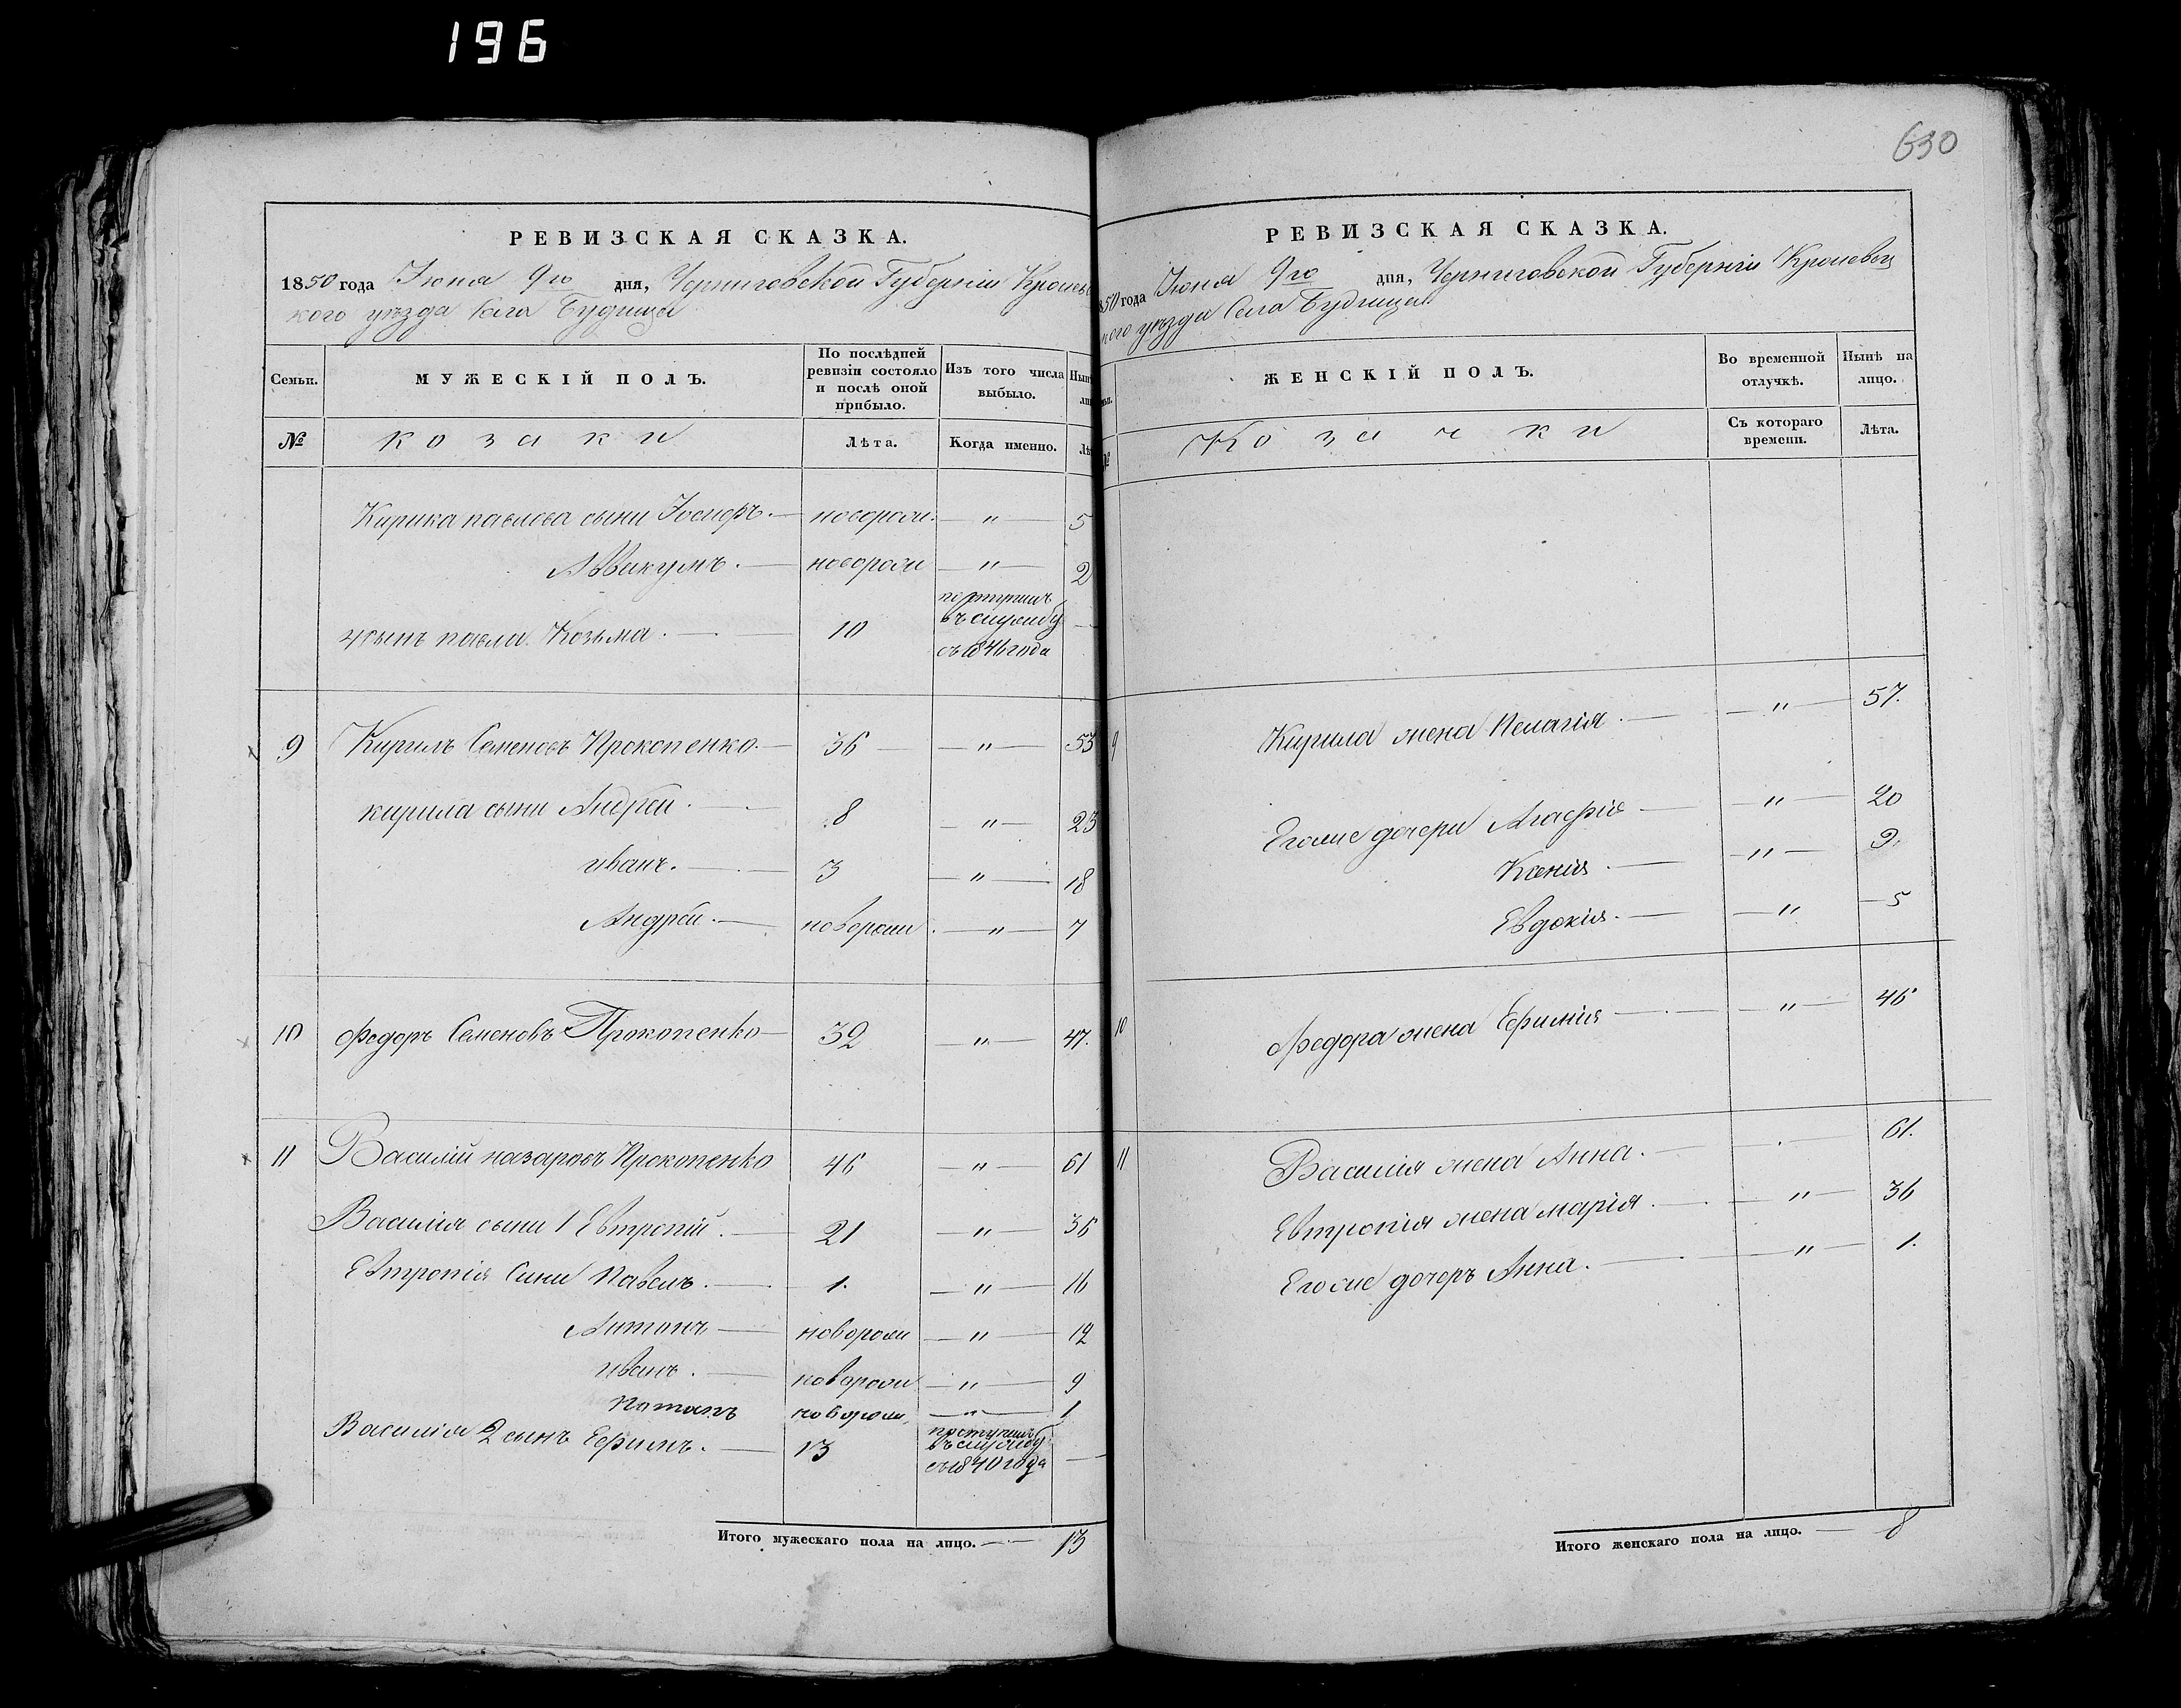 196
630
РЕВИЗСКАЯ СКАЗКА.
1850 года Июня 9го дня, Черниговской Губерніи Кролев
кого уезда Села Будища
Семьи. МУЖЕСКІЙ ПОЛЪ. По послѣдней ревизіи состояло и послѣ оной прибыло. Изъ того числа выбыло. Ны
№ козаки Лѣта. Когда именно. Лѣ
Кирика павлова сыни Іосифъ. новорож. — " — 5
Аввакумъ. новорож — " — 2
4 сынъ павла Козьма. 10 поступилъ въ службу съ 1846 года —
9 Кирилъ Семеновъ Прокопенко. 36 — " — 53
кирила сыни Андрей. 8 — " — 23
иванъ. 3 — " — 18
Андрей. новорож — " — 7
10 Федоръ Семеновъ Прокопенко 32 — " — 47.
11 Василій назаровъ Прокопенко 46 — " — 61
Василія сыни 1 Евтропій. 21 — " — 36
Евтропія Сини Павелъ. 1. — " — 16
Антонъ новорож — " — 12
иванъ. новорож — " — 9
Потапъ новорож — " — 1
Василія 2 сынъ Ефимъ. 13 поступилъ въ службу съ 1840 года —
Итого мужескаго пола на лицо. 13
РЕВИЗСКАЯ СКАЗКА.
850 года Июня 9го дня, Черниговской Губерніи Кролевец
кого уезда Села Будища
ЖЕНСКІЙ ПОЛЪ. Во временной отлучкѣ. Нынѣ на лицо.
№ Козачки Съ котораго времени. Лѣта.
9 Кирила жена Пелагія. — " — 57.
Егоже дочери Агафія — " — 20
Ксенія. — " — 9.
Евдокія. — " — 5
10 Федора жена Ефимія — " — 46
11 Василія жена Анна. — 61.
Евтропія жена марія. — " — 36
Егоже дочеръ Анна. — " — 1.
Итого женскаго пола на лицо. — 8